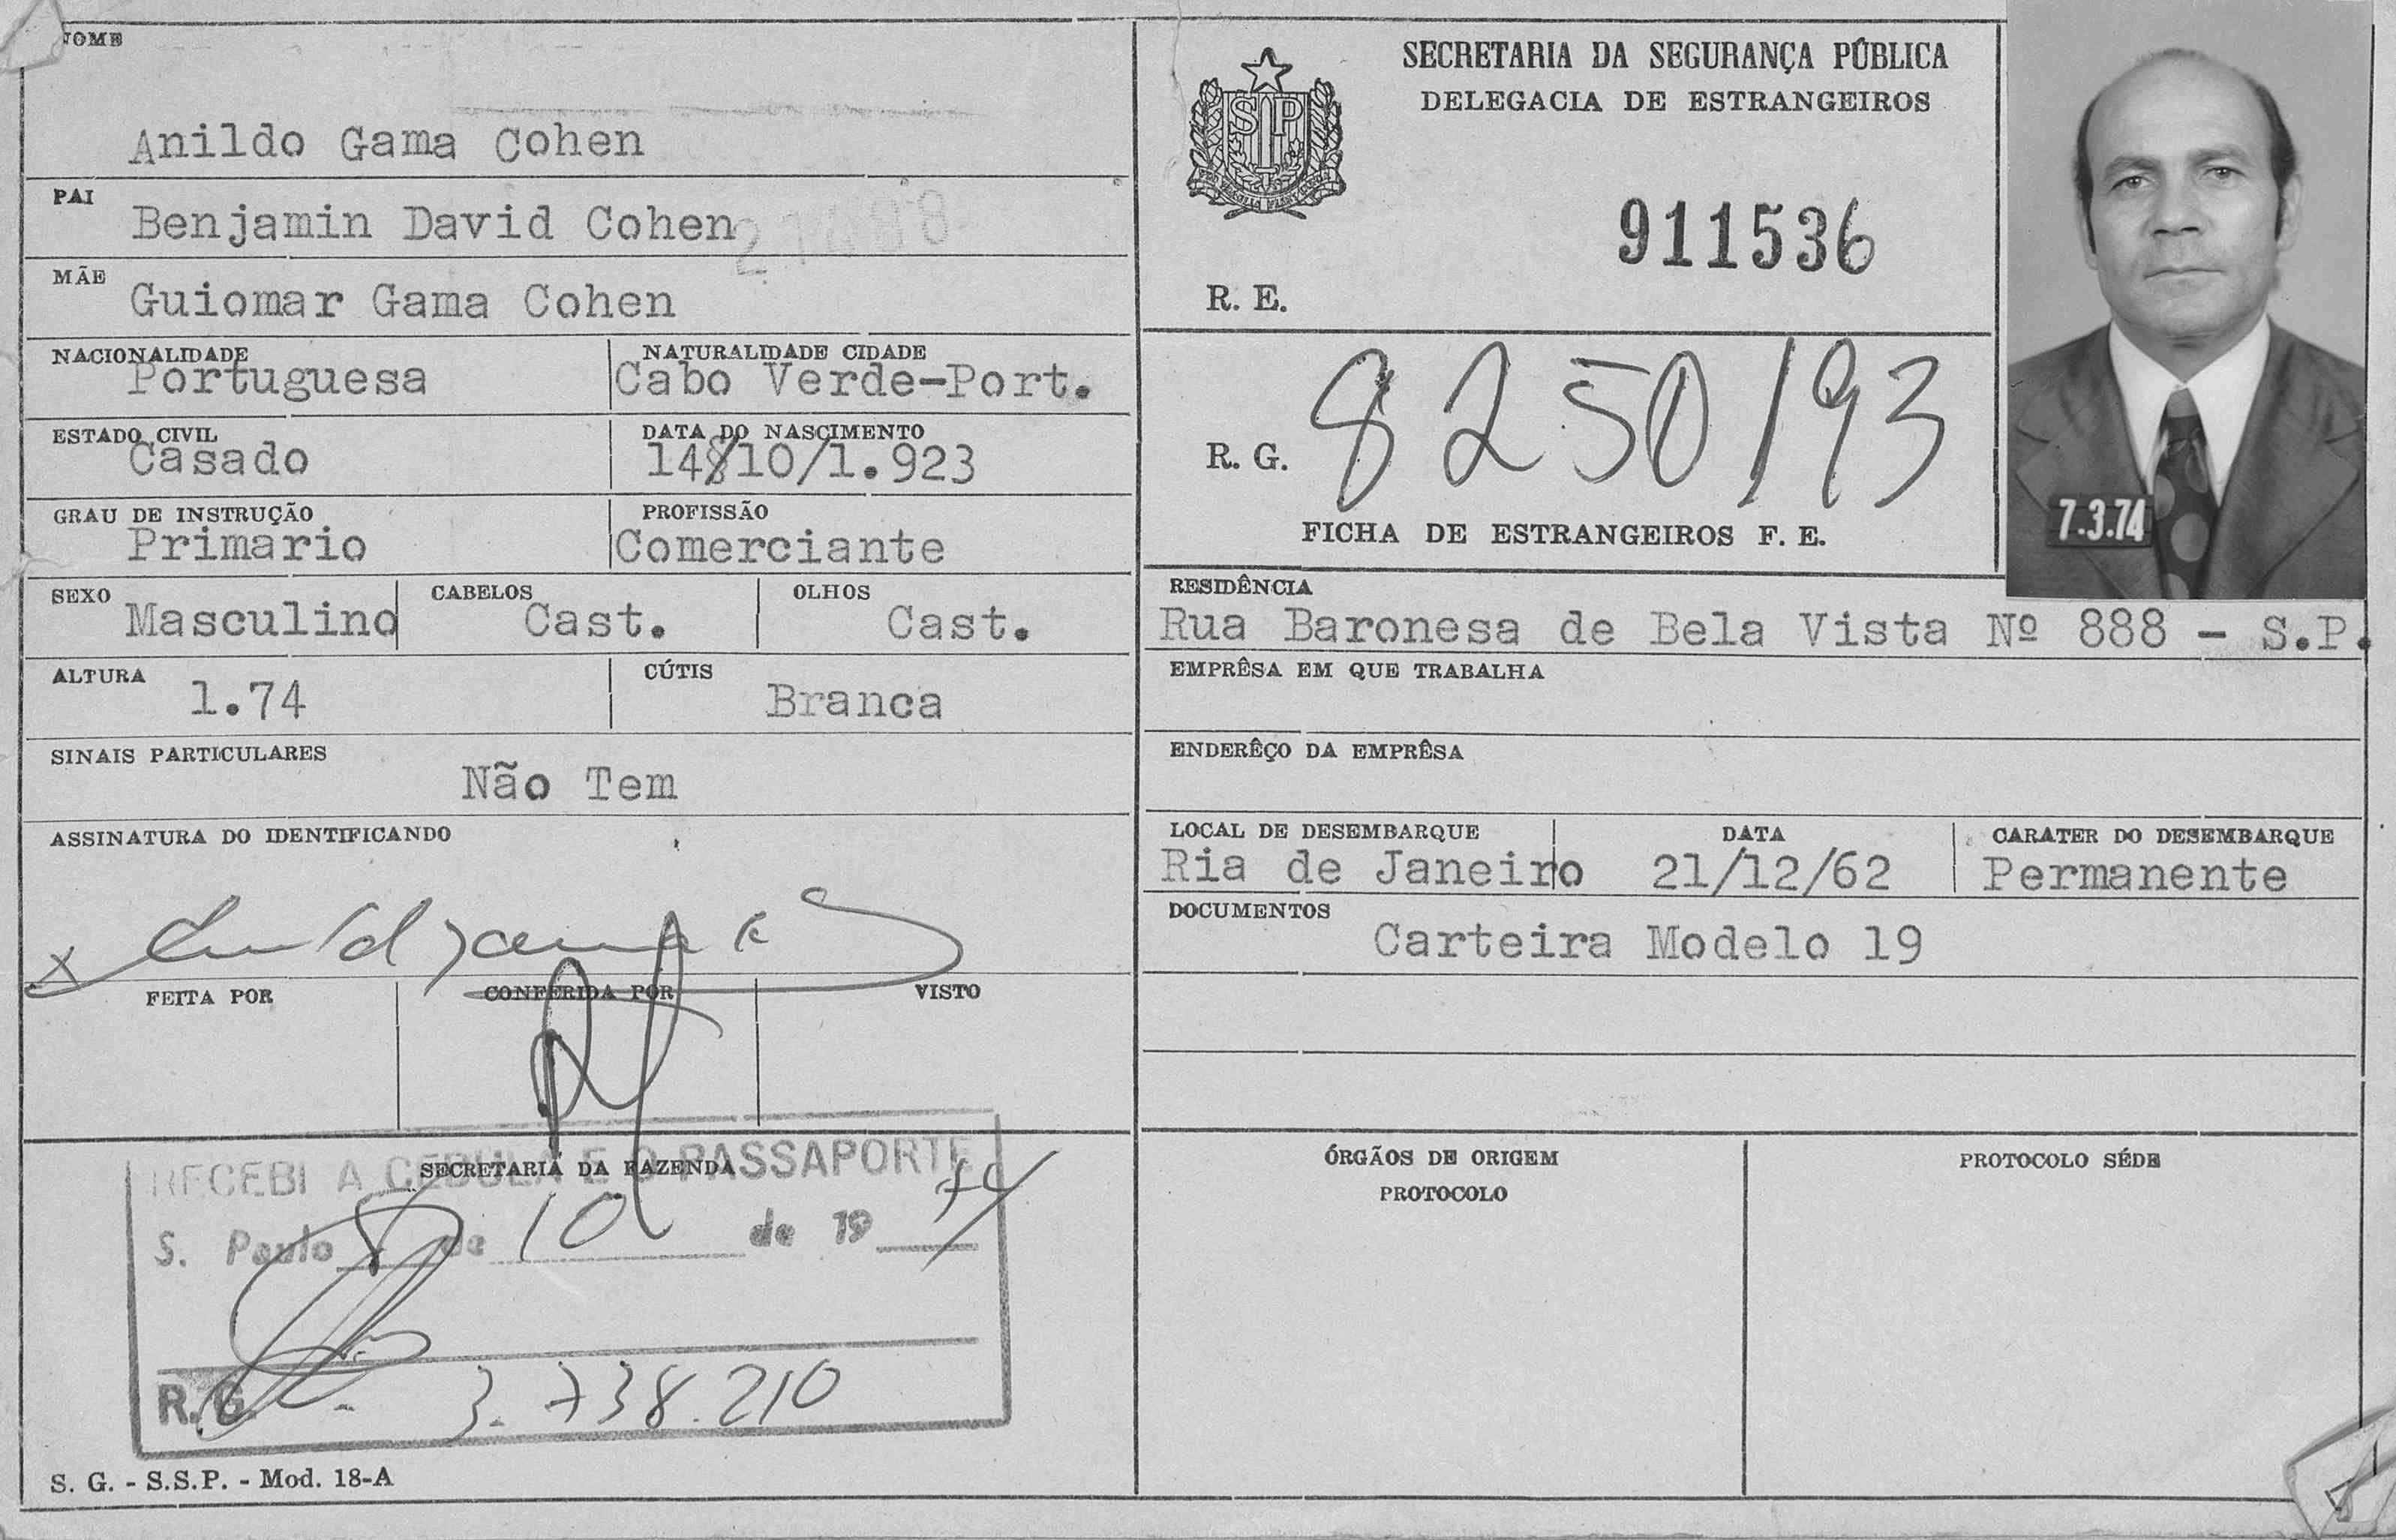 NOME
Anildo Gama Cohen
PAI
Benjamin David Cohen
MÃE
Guiomar Gama Cohen
NACIONALIDADE
Portuguesa
NATURALIDADE CIDADE
Cabo Verde-Port.
ESTADO CIVIL
Casado
DATA DO NASCIMENTO
14/10/1.923
GRAU DE INSTRUÇÃO
Primario
PROFISSÃO
Comerciante
SEXO
Masculino
CABELOS
Cast.
OLHOS
Cast.
ALTURA
1.74
CÚTIS
Branca
SINAIS PARTICULARES
Não Tem
ASSINATURA DO IDENTIFICANDO
X
FEITA POR
CONFERIDA POR
VISTO
SECRETARIA DA FAZENDA
RECEBI A CEDULA E O PASSAPORTE
S. Paulo 8 de 10 de 1974
R.G. 3.738.210
S. G. - S.S.P. - Mod. 18-A
SP
SECRETARIA DA SEGURANÇA PÚBLICA
DELEGACIA DE ESTRANGEIROS
911536
R. E.
R. G. 8250193
FICHA DE ESTRANGEIROS F. E.
7.3.74
RESIDÊNCIA
Rua Baronesa de Bela Vista Nº 888 - S.P.
EMPRÊSA EM QUE TRABALHA
ENDERÊÇO DA EMPRÊSA
LOCAL DE DESEMBARQUE
Ria de Janeiro
DATA
21/12/62
CARATER DO DESEMBARQUE
Permanente
DOCUMENTOS
Carteira Modelo 19
ÓRGÃOS DE ORIGEM
PROTOCOLO
PROTOCOLO SÉDE